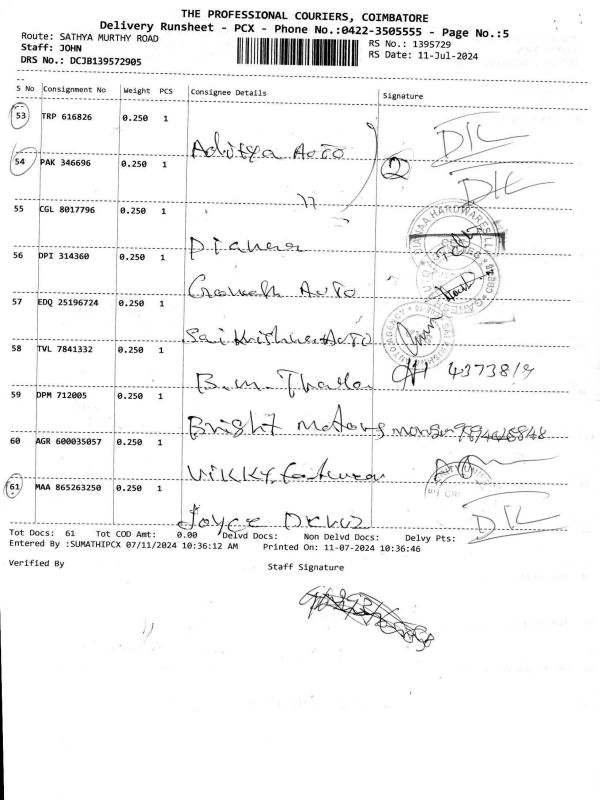 THE PROFESSIONAL COURIERS, COIMBATORE
Delivery Runsheet - PCX - Phone No.:0422-3505555 - Page No.:5
Route: SATHYA MURTHY ROAD
RS No.: 1395729
Staff: JOHN
RS Date: 11-Jul-2024
DRS No.: DCJB139572905
S No Consignment No Weight PCS Consignee Details Signature
53 TRP 616826 0.250 1
Aditya Auto D/L
54 PAK 346696 0.250 1 2
11 D/L
55 CGL 8017796 0.250 1
56 DPI 314360 0.250 1
Auto
57 EDQ 25196724 0.250 1
Sai Krishna Auto
58 TVL 7841332 0.250 1
B.M.
59 DPM 712005 0.250 1
Bright Motors
60 AGR 600035057 0.250 1
Vikky
61 MAA 865263250 0.250 1
Joyce D/L
Tot Docs: 61 Tot COD Amt: 0.00 Delvd Docs: Non Delvd Docs: Delvy Pts:
Entered By :SUMATHIPCX 07/11/2024 10:36:12 AM Printed On: 11-07-2024 10:36:46
Verified By
Staff Signature